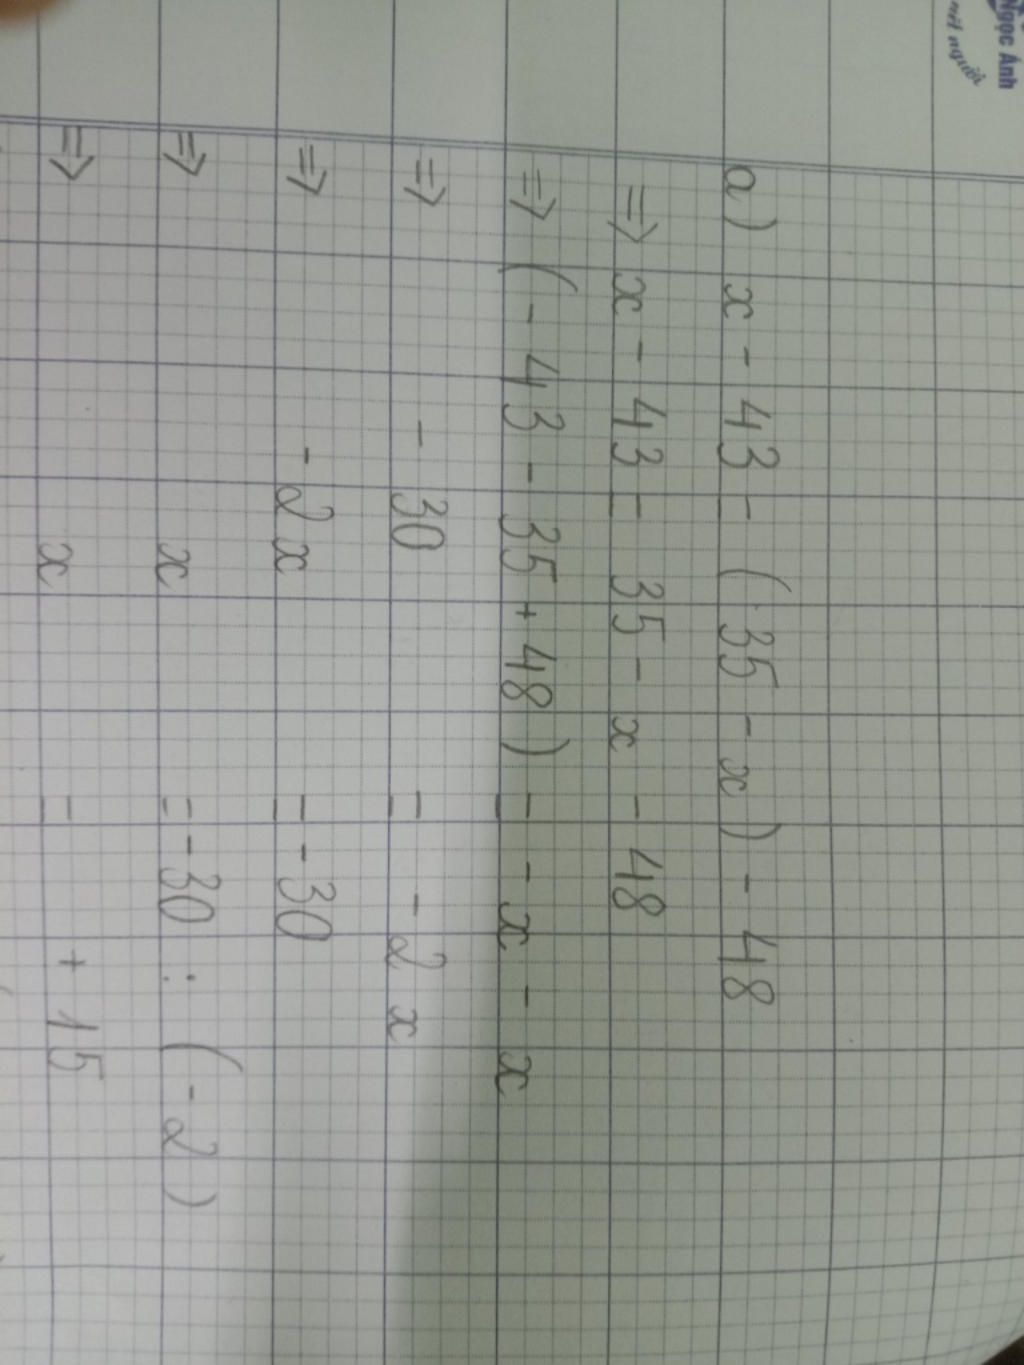 Ngọc Ánh
nét người
a) x - 43 = (35 - x) - 48
=> x - 43 = 35 - x - 48
=> (- 43 - 35 + 48) = - x - x
=> - 30 = - 2x
=> - 2x = - 30
=> x = - 30 : (- 2)
=> x = + 15